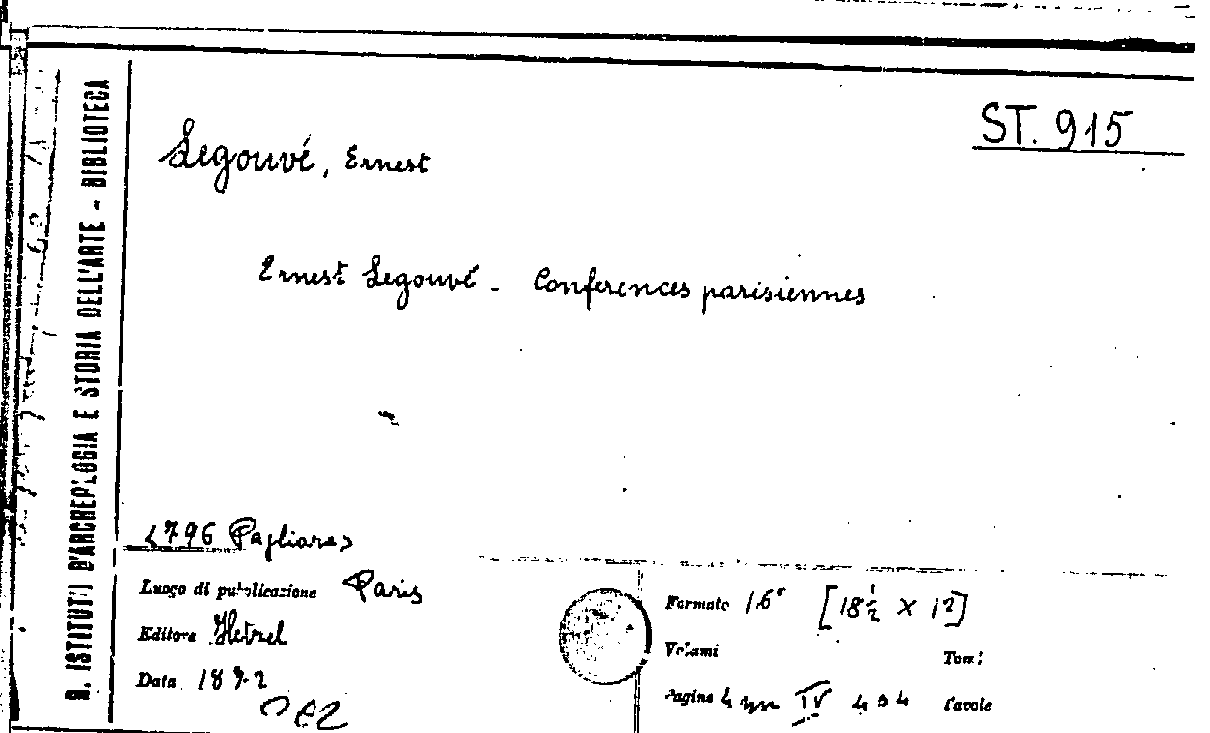 ST. 915
Legouvé, Ernest
Ernest Legouvé - Conferences parisiennes
R. ISTITUTO D'ARCHEOLOGIA E STORIA DELL'ARTE - BIBLIOTECA
<796 Pagliara>
Luogo di pubblicazione Paris
Editore Hetzel
Data 1872
Formato 16° [18½ X 12]
Volumi Tomi
Pagine IV Tavole